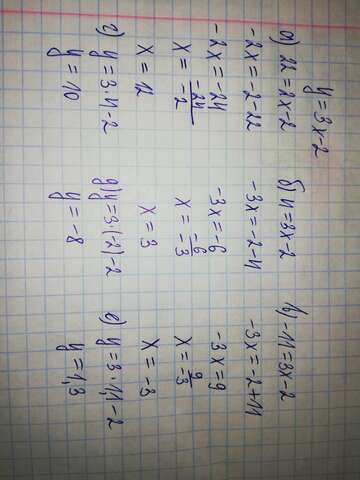 y=3x-2
а) 22=2x-2
-2x=-2-22
-2x=-24
x=-24/-2
x=12
б) 4=3x-2
-3x=-2-4
-3x=-6
x=-6/-3
x=3
в) -11=3x-2
-3x=-2+11
-3x=9
x=9/-3
x=-3
г) y=3·4-2
y=10
д) y=3·(-2)-2
y=-8
е) y=3·1,1-2
y=1,3